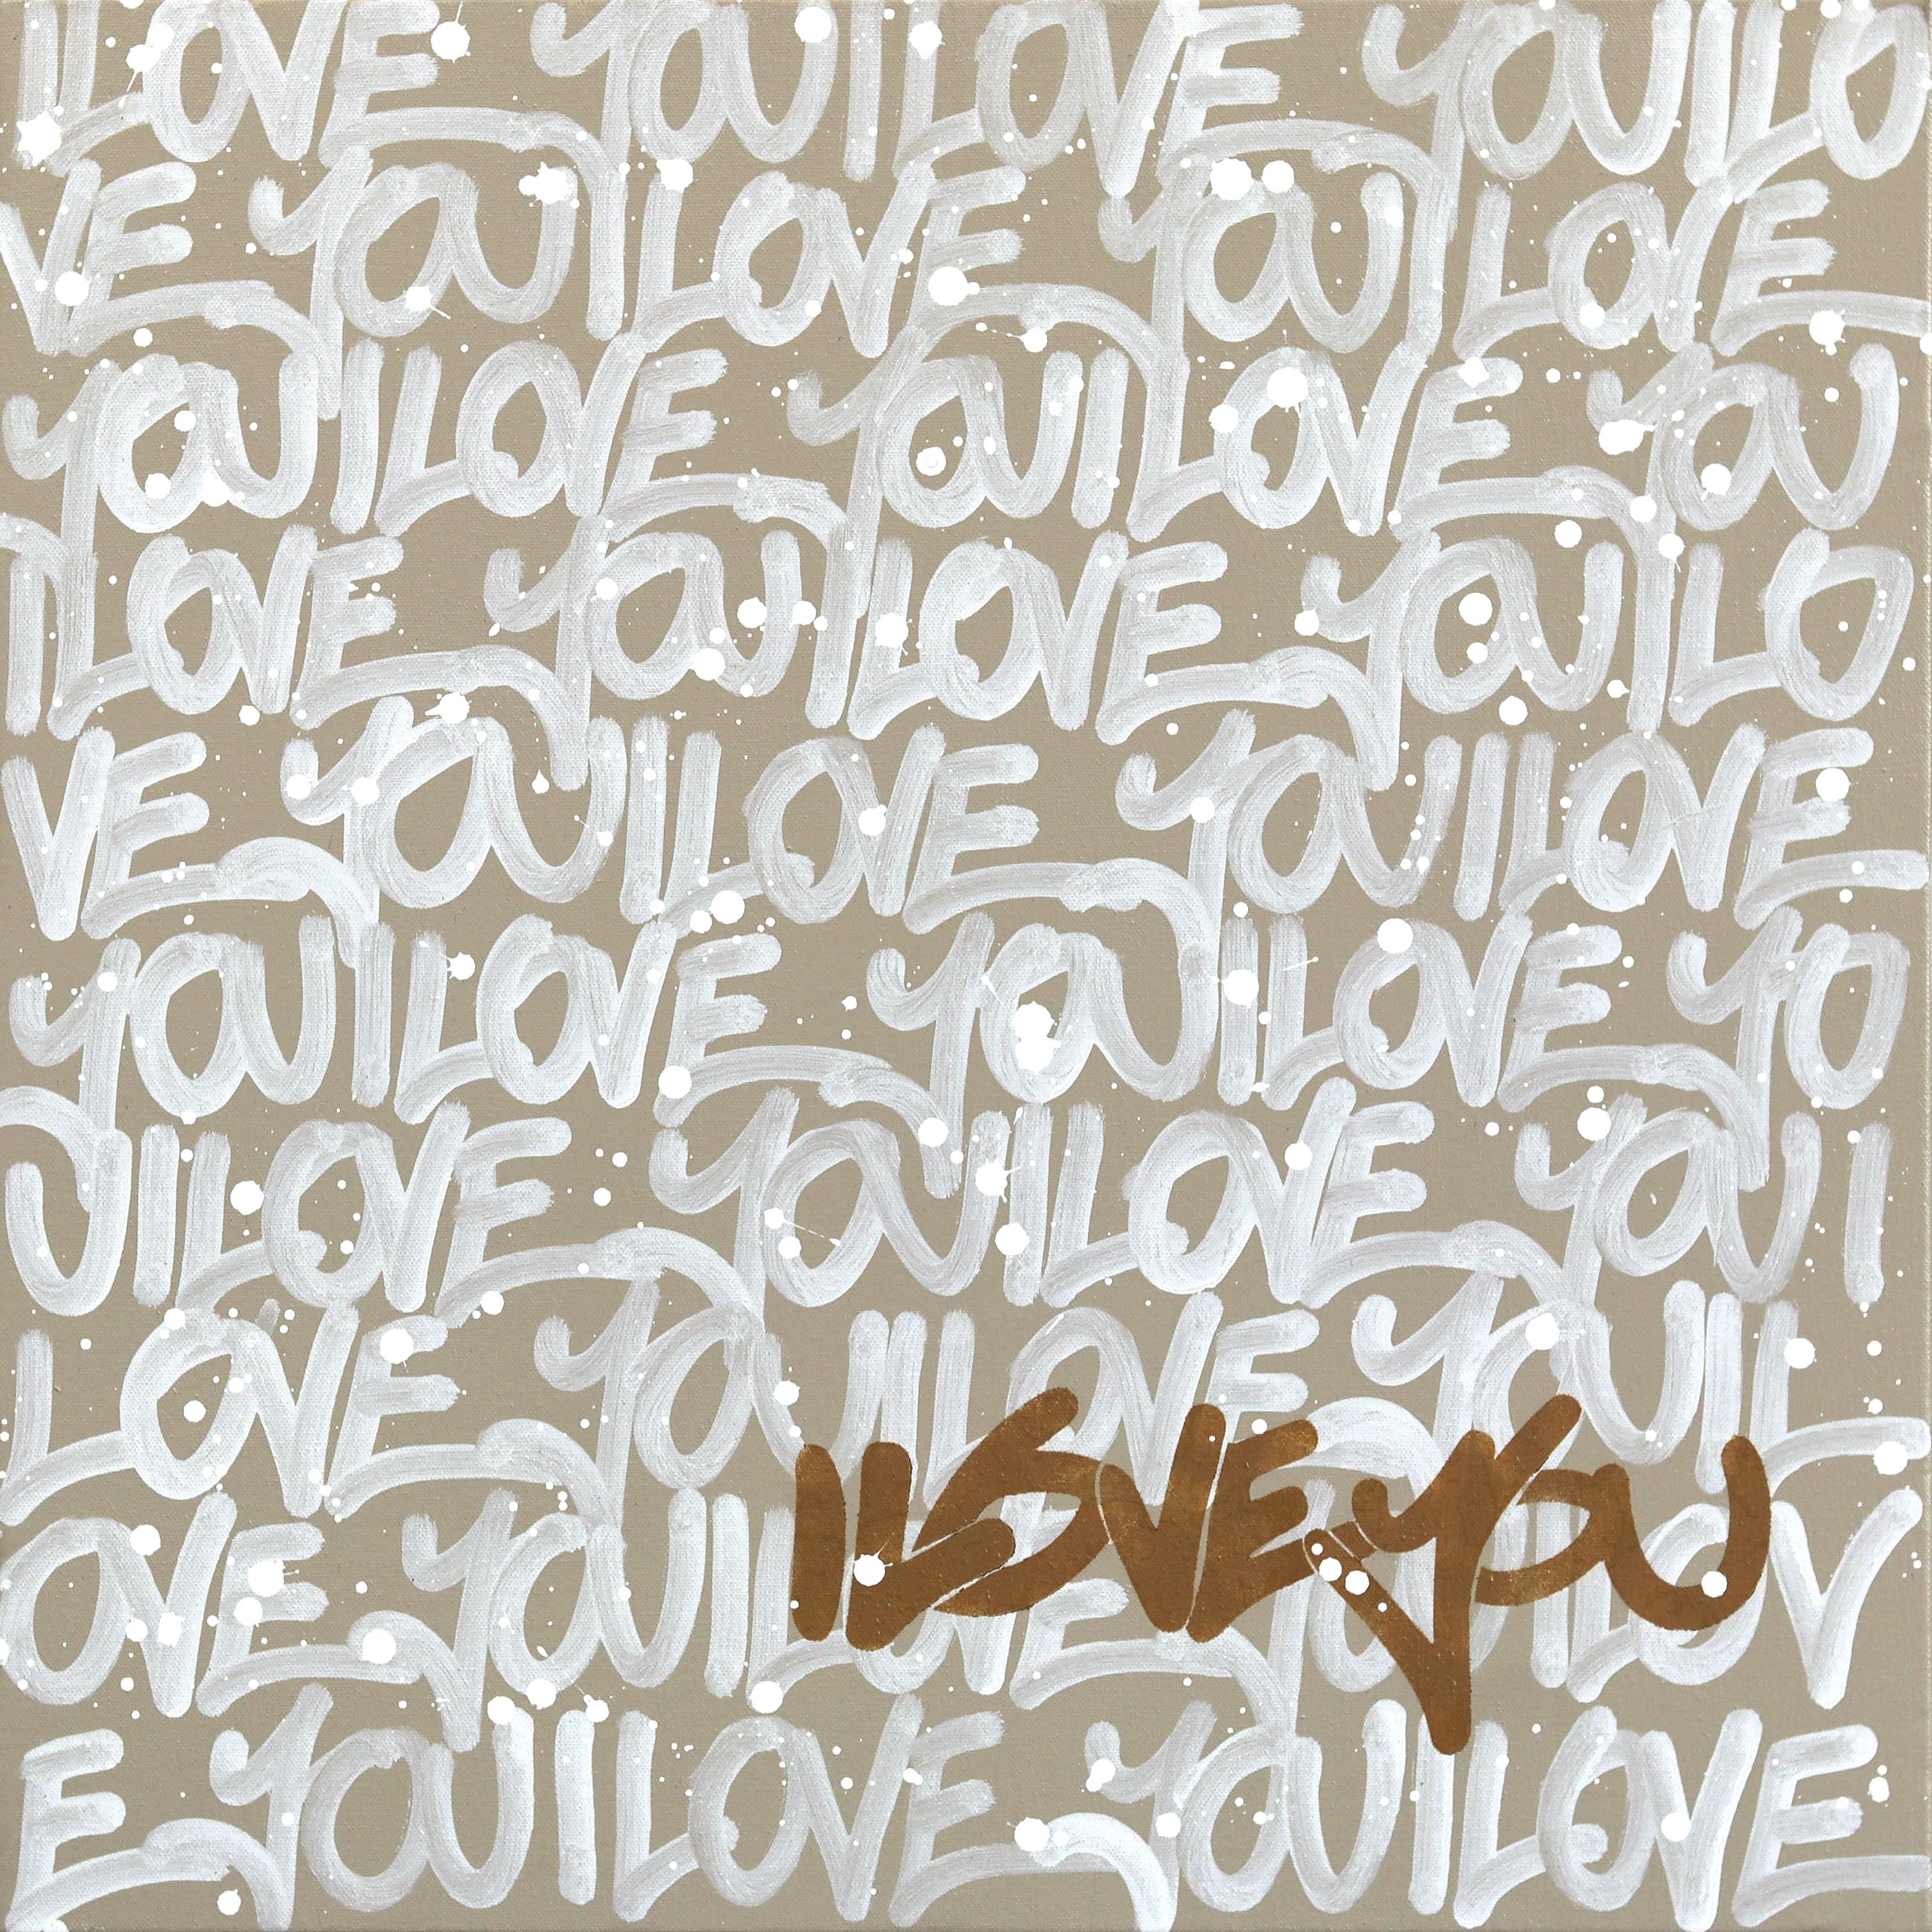 I LOVE YOU I LOVE YOU I LO
VE YOU I LOVE YOU I LOVE
YOU I LOVE YOU I LOVE YOU
I LOVE YOU I LOVE YOU I LO
VE YOU I LOVE YOU I LOVE
YOU I LOVE YOU I LOVE YO
U I LOVE YOU I LOVE YOU I
LOVE YOU I LOVE YOU I L
OVE YOU I LOVE YOU I LOV
I LOVE YOU
E YOU I LOVE YOU I LOVE